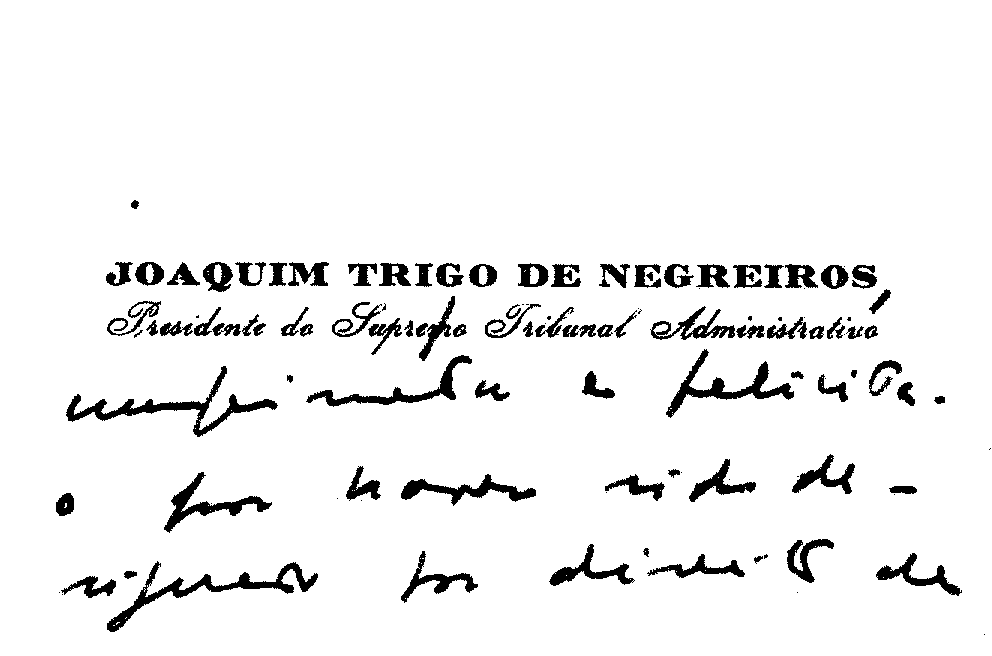 JOAQUIM TRIGO DE NEGREIROS,
Presidente do Supremo Tribunal Administrativo
cumprimenta e felicita-
o por haver sido de-
signado por direito de